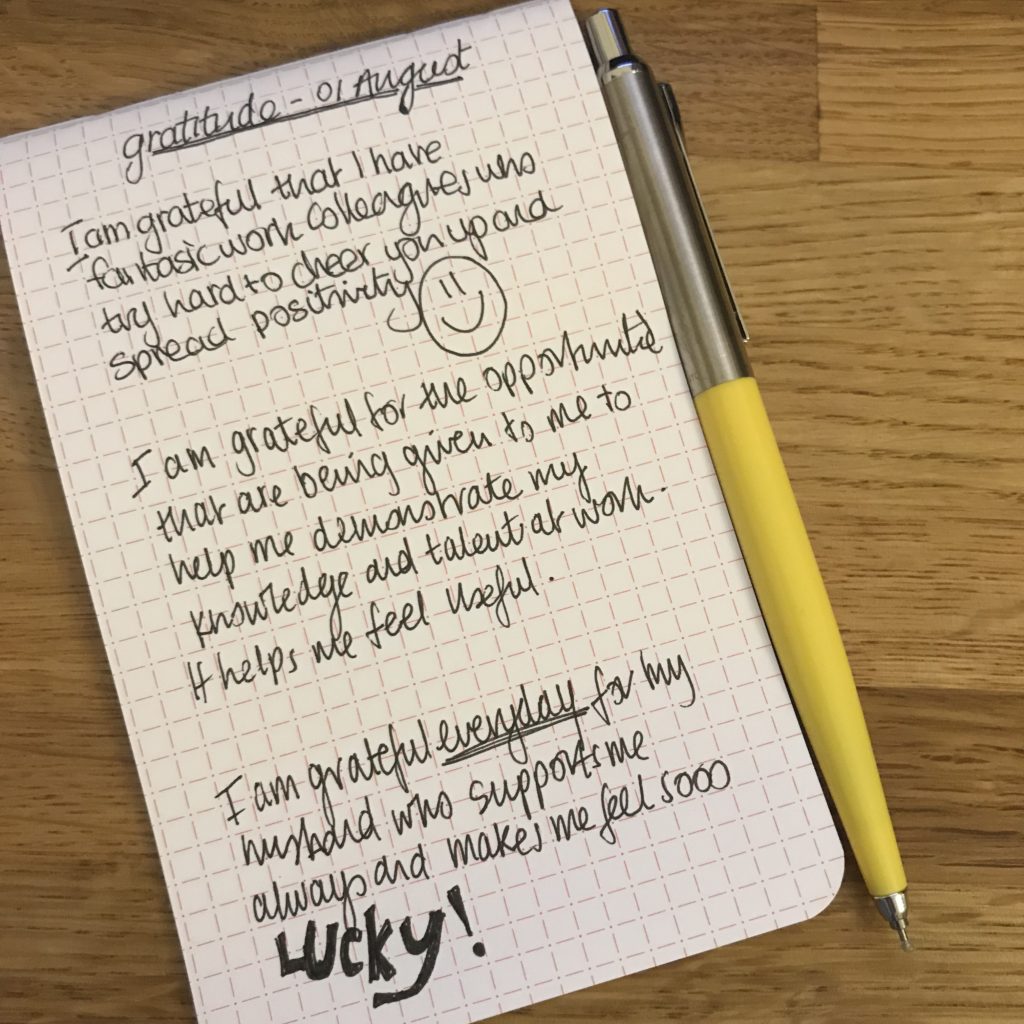 gratitude - 01 August
I am grateful that I have
fantasic work colleagues who
try hard to cheer you up and
spread positivity
I am grateful for the opportunitie
that are being given to me to
help me demonstrate my
knowledge and talent at work.
It helps me feel useful.
I am grateful everyday for my
husband who supports me
always and makes me feel sooo
LUCKY!